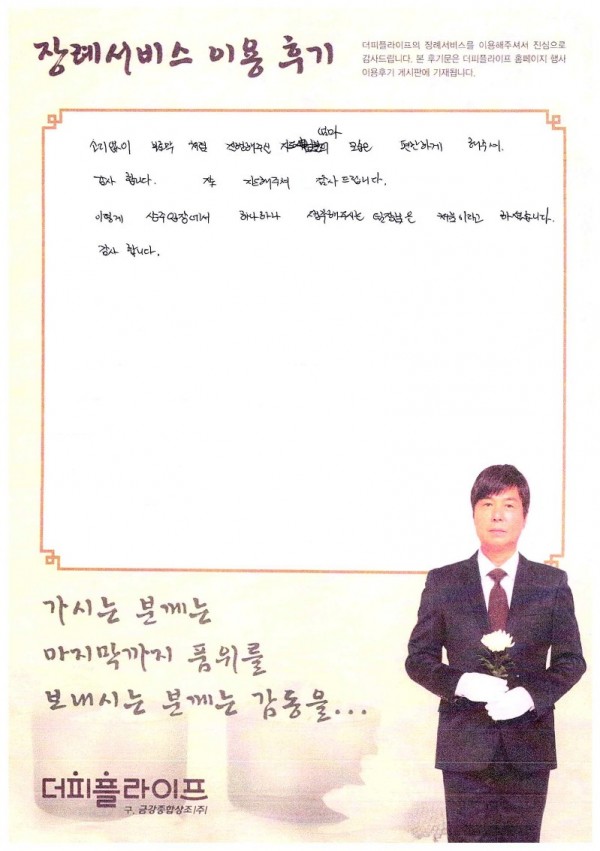 장례서비스 이용 후기
더피플라이프의 장례서비스를 이용해주셔서 진심으로
감사드립니다. 본 후기문은 더피플라이프 홈페이지 행사
이용후기 게시판에 기재됩니다.
엄마
소리없이 처럼 모습은 편안하게 해주셔서.
감사 합니다. 잘 지도해주셔 감사드립니다.
이렇게 상주입장에서 하나하나 팀장님은 처음이라고 하셨습니다.
감사 합니다.
가시는 분께는
마지막까지 품위를
보내시는 분께는 감동을...
더피플라이프
구. 금강종합상조(주)